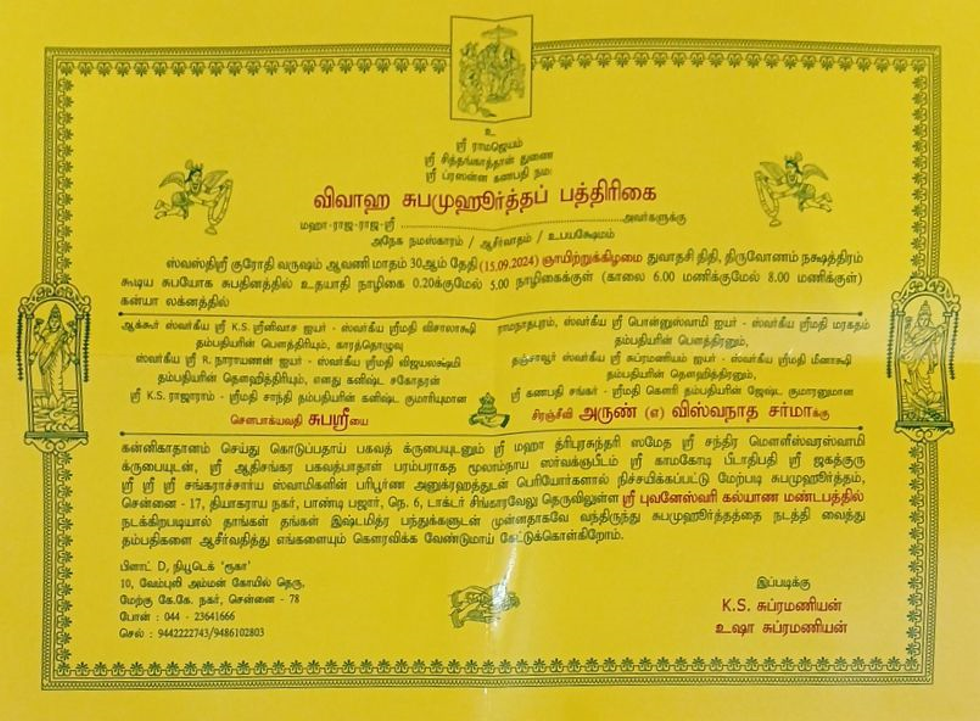 உ
ஸ்ரீ ராமஜெயம்
ஸ்ரீ சித்தங்காத்தான் துணை
ஸ்ரீ ப்ரஸன்ன கணபதி நம:
விவாஹ சுபமுஹூர்த்தப் பத்திரிகை
மஹா-ராஜ-ராஜ-ஸ்ரீ ............ அவர்களுக்கு
அநேக நமஸ்காரம் / ஆசீர்வாதம் / உபயக்ஷேமம்
ஸ்வஸ்திஸ்ரீ குரோதி வருஷம் ஆவணி மாதம் 30ஆம் தேதி (15.09.2024) ஞாயிற்றுக்கிழமை துவாதசி திதி, திருவோணம் நக்ஷத்திரம்
கூடிய சுபயோக சுபதினத்தில் உதயாதி நாழிகை 0.20க்குமேல் 5.00 நாழிகைக்குள் (காலை 6.00 மணிக்குமேல் 8.00 மணிக்குள்)
கன்யா லக்னத்தில்
ஆக்கூர் ஸ்வர்கீய ஸ்ரீ K.S. ஸ்ரீனிவாச ஐயர் - ஸ்வர்கீய ஸ்ரீமதி விசாலாக்ஷி
தம்பதியரின் பௌத்திரியும், காரத்தொழுவு
ஸ்வர்கீய ஸ்ரீ R. நாராயணன் ஐயர் - ஸ்வர்கீய ஸ்ரீமதி விஜயலக்ஷ்மி
தம்பதியரின் தௌஹித்திரியும், எனது கனிஷ்ட சகோதரன்
ஸ்ரீ K.S. ராஜாராம் - ஸ்ரீமதி சாந்தி தம்பதியரின் கனிஷ்ட குமாரியுமான
சௌபாக்யவதி சுபஸ்ரீயை
ராமநாதபுரம், ஸ்வர்கீய ஸ்ரீ பொன்னுஸ்வாமி ஐயர் - ஸ்வர்கீய ஸ்ரீமதி மரகதம்
தம்பதியரின் பௌத்திரனும்,
தஞ்சாவூர் ஸ்வர்கீய ஸ்ரீ சுப்ரமணியம் ஐயர் - ஸ்வர்கீய ஸ்ரீமதி மீனாக்ஷி
தம்பதியரின் தௌஹித்திரனும்,
ஸ்ரீ கணபதி சங்கர் - ஸ்ரீமதி கௌரி தம்பதியரின் ஜேஷ்ட குமாரனுமான
சிரஞ்சீவி அருண் (எ) விஸ்வநாத சர்மாக்கு
கன்னிகாதானம் செய்து கொடுப்பதாய் பகவத் க்ருபையுடனும் ஸ்ரீ மஹா த்ரிபுரசுந்தரி ஸமேத ஸ்ரீ சந்திர மௌலீஸ்வரஸ்வாமி
க்ருபையுடன், ஸ்ரீ ஆதிசங்கர பகவத்பாதாள் பரம்பராகத மூலாம்நாய ஸர்வக்ஞபீடம் ஸ்ரீ காமகோடி பீடாதிபதி ஸ்ரீ ஜகத்குரு
ஸ்ரீ ஸ்ரீ ஸ்ரீ சங்கராச்சார்ய ஸ்வாமிகளின் பரிபூர்ண அனுக்ரஹத்துடன் பெரியோர்களால் நிச்சயிக்கப்பட்டு மேற்படி சுபமுஹூர்த்தம்,
சென்னை - 17, தியாகராய நகர், பாண்டி பஜார், நெ. 6, டாக்டர் சிங்காரவேலு தெருவிலுள்ள ஸ்ரீ புவனேஸ்வரி கல்யாண மண்டபத்தில்
நடக்கிறபடியால் தாங்கள் தங்கள் இஷ்டமித்ர பந்துக்களுடன் முன்னதாகவே வந்திருந்து சுபமுஹூர்த்தத்தை நடத்தி வைத்து
தம்பதிகளை ஆசீர்வதித்து எங்களையும் கௌரவிக்க வேண்டுமாய் கேட்டுக்கொள்கிறோம்.
பிளாட் D, நியூடெக் ‘ருகா’
10, வேம்புலி அம்மன் கோயில் தெரு,
மேற்கு கே.கே. நகர், சென்னை - 78
போன் : 044 - 23641666
செல் : 9442222743/9486102803
இப்படிக்கு
K.S. சுப்ரமணியன்
உஷா சுப்ரமணியன்